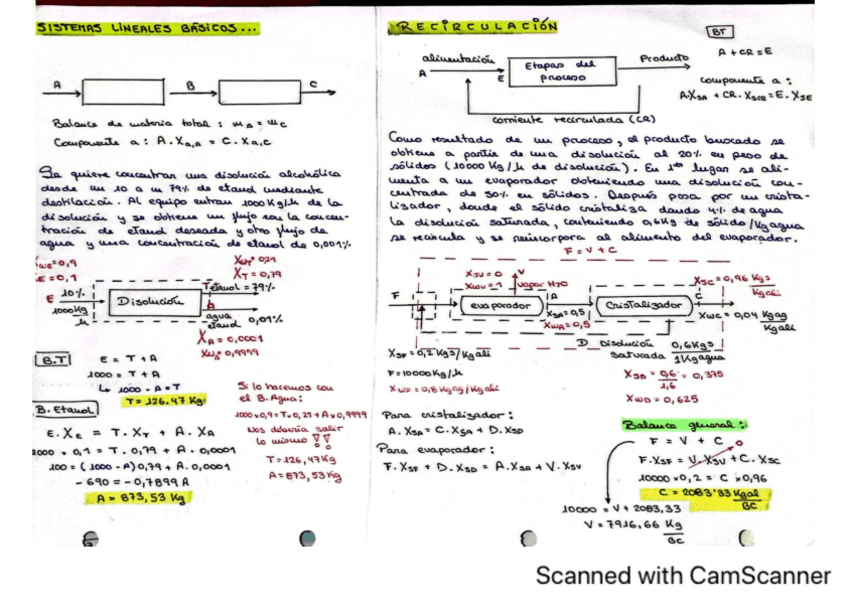 SISTEMAS LINEALES BÁSICOS...
A B C
Balance de materia total: mA = mC
Componente a: A.Xa,A = C.Xa,C
Se quiere concentrar una disolución alcohólica
desde un 10 a un 79% de etanol mediante
destilación. Al equipo entran 1000 Kg/h de la
disolución y se obtiene un flujo con la concen-
tración de etanol deseada y otro flujo de
agua y una concentración de etanol de 0,001%
XWE=0,9
XE=0,1
XWT=0,21
XT=0,79
T etanol = 79%
E 10%
1000 Kg/h
Disolución
A
agua
etanol 0,01%
XA = 0,0001
XWA=0,9999
B.T
E = T + A
1000 = T + A
↳ 1000 - A = T
T = 126,47 Kg
B. Etanol
E.XE = T.XT + A.XA
1000 × 0,1 = T.0,79 + A.0,0001
100 = (1000 - A)0,79 + A.0,0001
-690 = -0,7899 A
A = 873,53 Kg
Si lo hacemos con
el B. Agua:
1000×0,9 = T.0,21 + A×0,9999
Nos debería salir
lo mismo!!
T = 126,47 Kg
A = 873,53 Kg
RECIRCULACIÓN
BT
A + CR = E
alimentación
A
E
Etapas del
proceso
Producto
corriente recirculada (CR)
componente a:
A.XSA + CR.XSCR = E.XSE
Como resultado de un proceso, el producto buscado se
obtiene a partir de una disolución al 20% en peso de
sólidos (10000 Kg/h de disolución). En 1er lugar se ali-
menta a un evaporador obteniendo una disolución con-
centrada de 50% en sólidos. Después pasa por un crista-
lizador, donde el sólido cristaliza dando 4% de agua
La disolución saturada, conteniendo 0,6Kg de sólido/Kg agua
se recircula y se reincorpora al alimento del evaporador.
F = V + C
XSV = 0
XWV = 1
V
vapor H2O
F
evaporador
A
XSA = 0,5
XWA = 0,5
Cristalizador
C
XSC = 0,96 Kgs/Kgali
XWC = 0,04 Kgag/Kgali
D Disolución saturada
0,6Kgs
1Kgagua
XSF = 0,2 Kgs/Kgali
F = 10000 Kg/h
XWF = 0,8 Kgag/Kgali
XSD = 0,6/1,6 = 0,375
XWD = 0,625
Para cristalizador:
A.XSA = C.XSA + D.XSD
Para evaporador:
F.XSF + D.XSD = A.XSA + V.XSV
Balance general:
F = V + C
F.XSF = V.XSV + C.XSC
0
10000 × 0,2 = C × 0,96
C = 2083'33 Kgal/BC
10000 = V + 2083,33
V = 7916,66 Kg/BC
Scanned with CamScanner